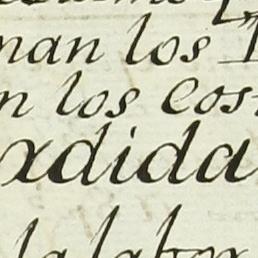 man los
n los Cos
xdida
la labor